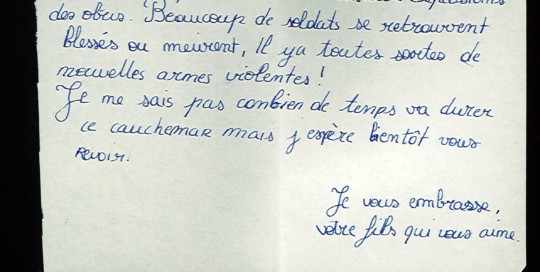 des obus. Beaucoup de soldats se retrouvent
blessés ou meurent, Il ya toutes sortes de
nouvelles armes violentes !
Je ne sais pas combien de temps va durer
ce cauchemar mais j'espère bientôt vous
revoir.
Je vous embrasse,
votre fils qui vous aime.